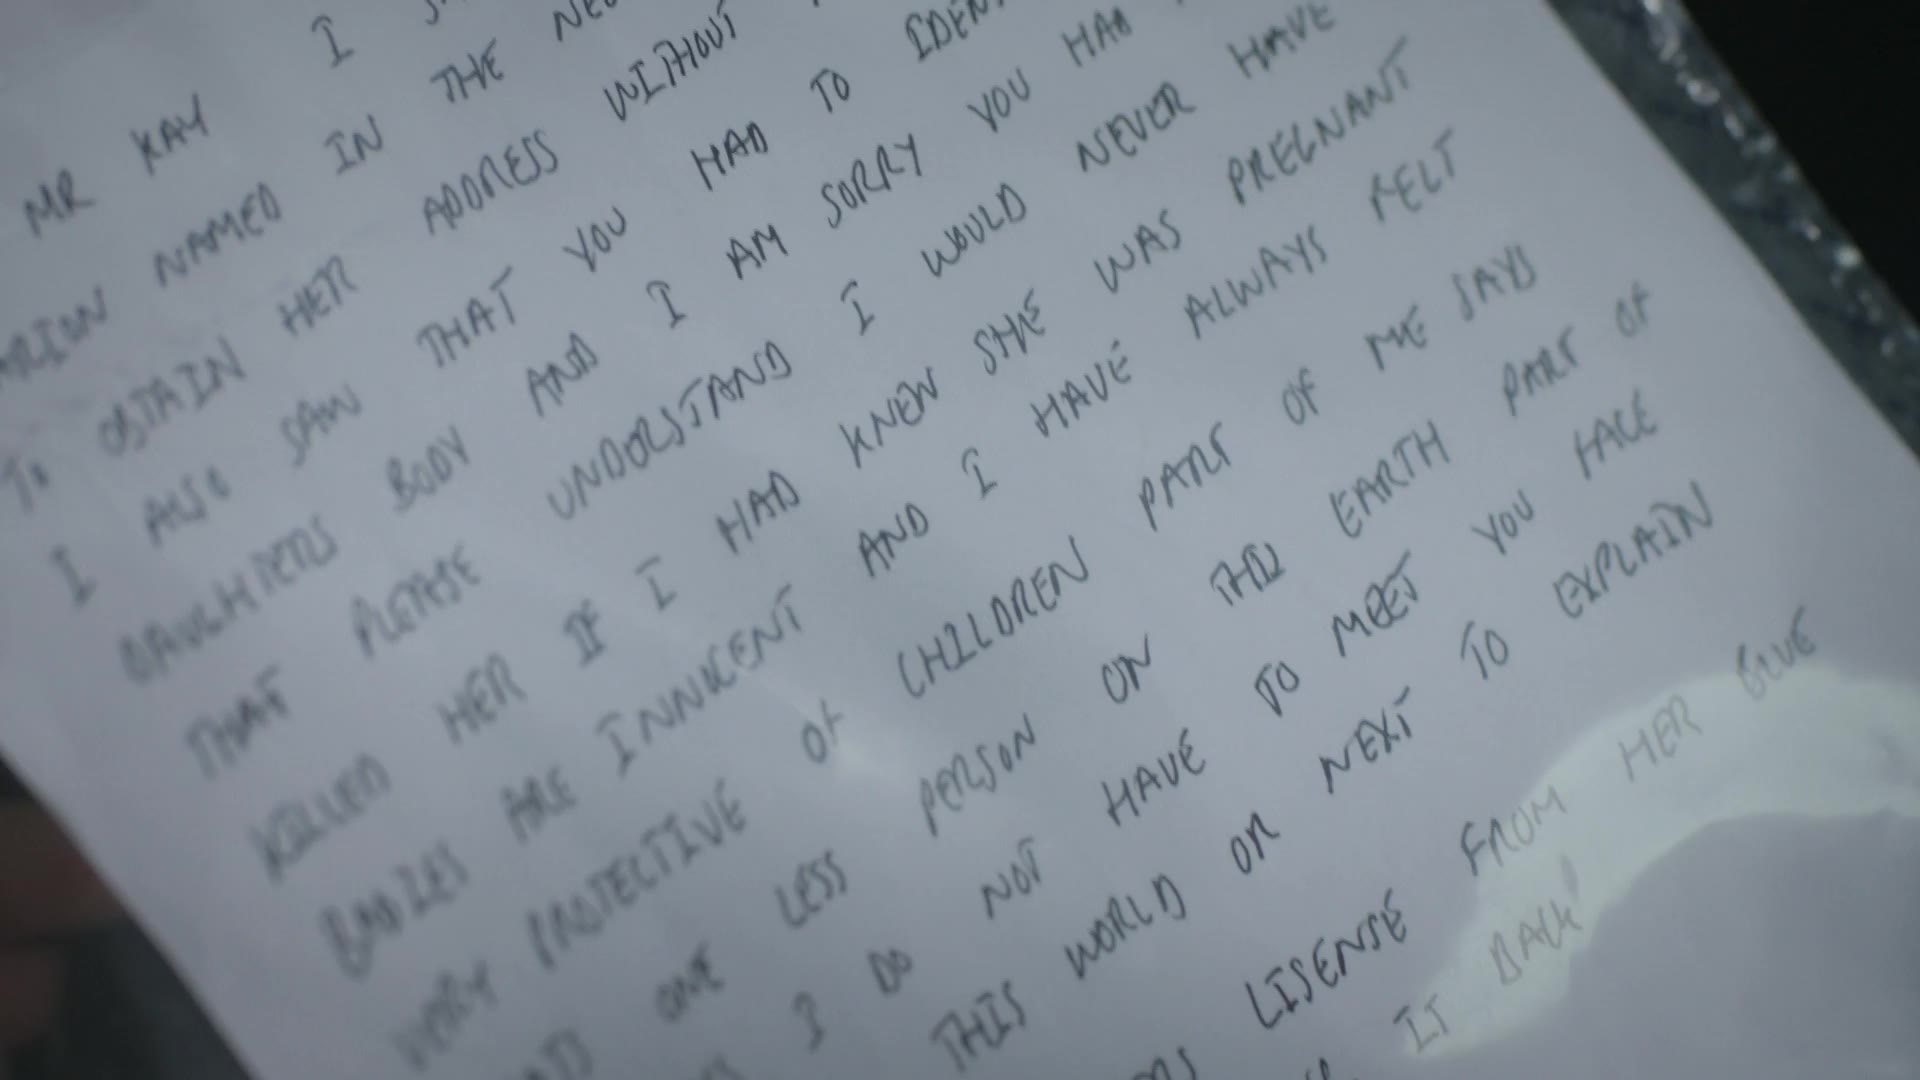 MR KAY I S
ARION NAMED IN THE NEW
TO OBTAIN HER ADDRESS WITHOUT
I ALSO SAW THAT YOU HAD TO IDEN
DAUGHTERS BODY AND I AM SORRY YOU HAD
THAT PLEASE UNDERSTAND I WOULD NEVER HAVE
KILLED HER IF I HAD KNEW SHE WAS PREGNANT
BABIES ARE INNOCENT AND I HAVE ALWAYS FELT
VERY PROTECTIVE OF CHILDREN PART OF ME SAYS
ONE LESS PERSON ON THIS EARTH PART OF
I DO NOT HAVE TO MEET YOU FACE
THIS WORLD OR NEXT TO EXPLAIN
LISENSE FROM HER GLUE
IT BACK